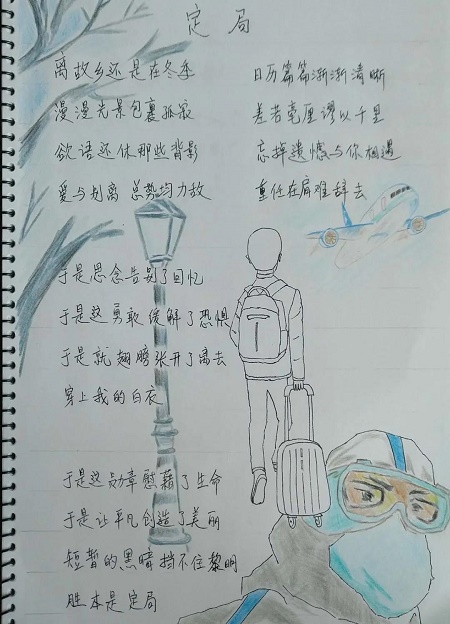 定局
离故乡还是在冬季
漫漫光景包裹孤寂
欲语还休那些背影
爱与别离 总势均力敌
日历篇篇渐渐清晰
差若毫厘谬以千里
忘掉遗憾与你相遇
重任在肩难辞去
于是思念告别了回忆
于是这勇敢缓解了恐惧
于是就翅膀张开了离去
穿上我的白衣
于是这勋章慰藉了生命
于是让平凡创造了美丽
短暂的黑暗挡不住黎明
胜本是定局